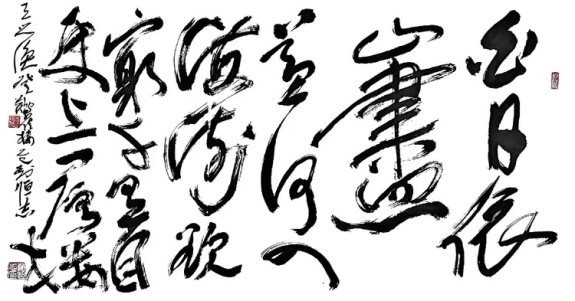 白日依
山盡
黄河入
海流欲
窮千里目
更上一層樓
王之渙登鸛雀樓